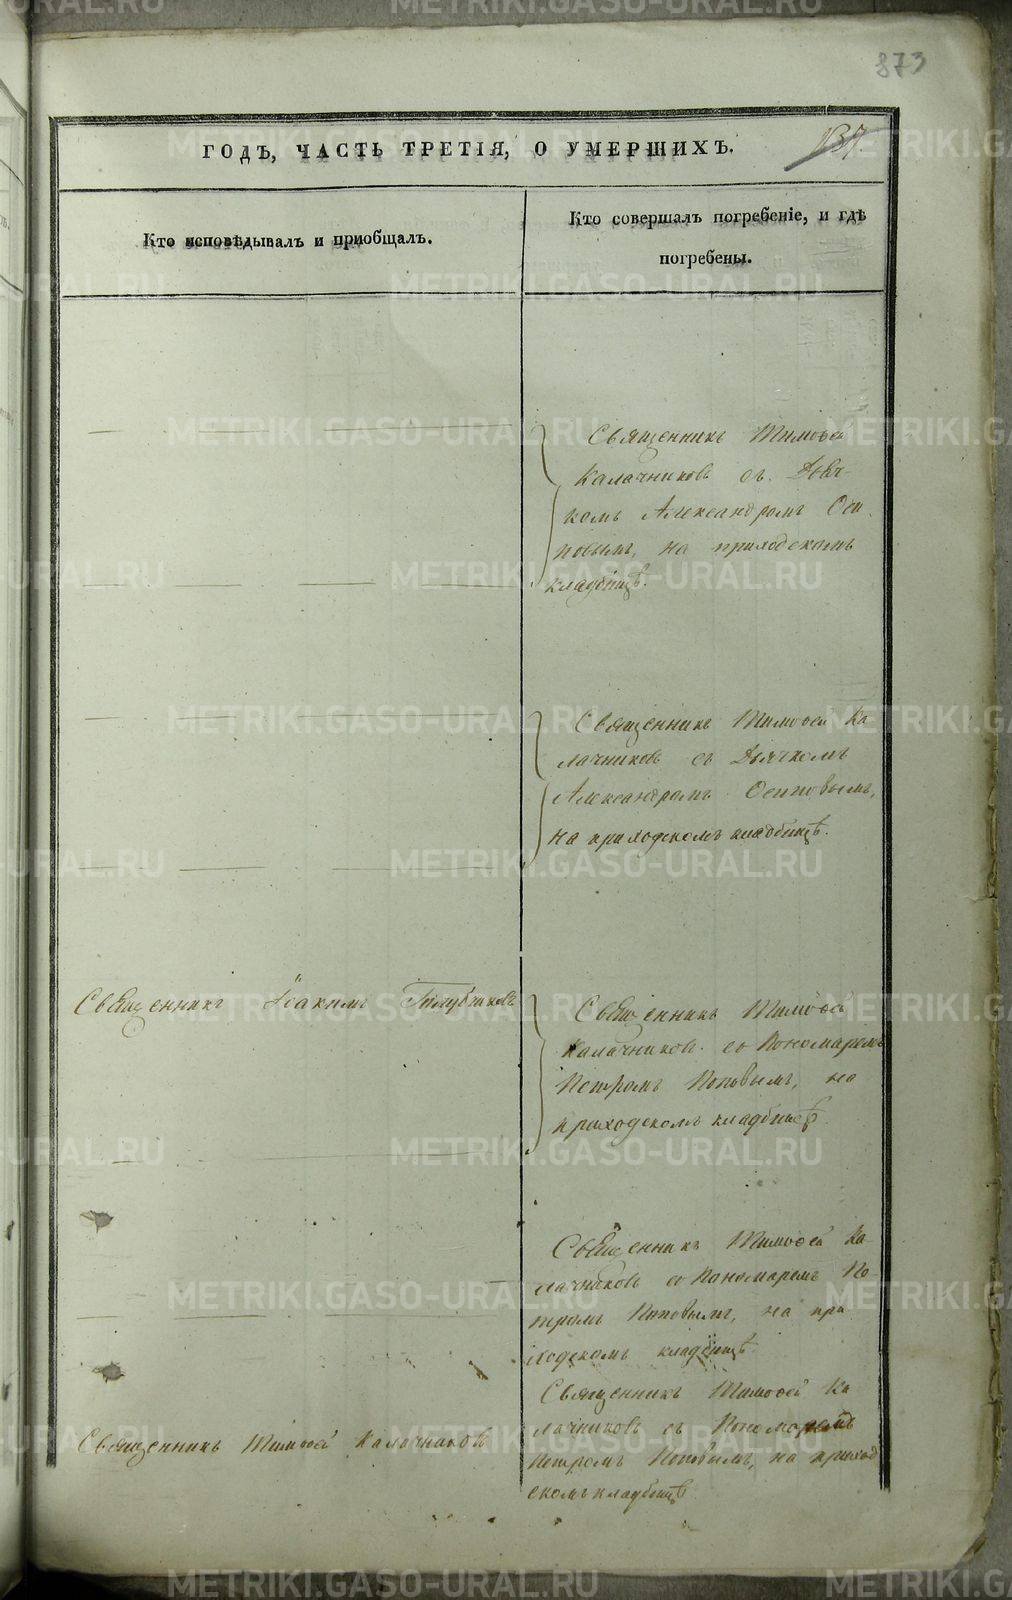 873
ГОДЪ, ЧАСТЬ ТРЕТІЯ, О УМЕРШИХЪ.
137.
Кто исповѣдывалъ и пріобщалъ.
Кто совершалъ погребеніе, и гдѣ
погребены.
Священникъ Тимоѳей
Калачниковъ съ Дьяч-
комъ Александромъ Оси
повымъ, на приходскомъ
кладбищѣ.
Священникъ Тимоѳей Ка
лачниковъ съ Дьячкомъ
Александромъ Осиповымъ,
на приходскомъ кладбищѣ.
Священникъ Іакимъ
Священникъ Тимоѳей
Калачниковъ. со Пономаремъ
Петромъ Поповымъ, на
приходскомъ кладбищѣ
Священникъ Тимоѳей Ка-
лачниковъ со Пономаремъ Пе
тромъ Поповымъ, на при
ходскомъ кладбищѣ
Священникъ Тимоѳей Ка
лачниковъ съ Пономаремъ
Петромъ Поповымъ, на приход
скомъ кладбищѣ
Священникъ Тимоѳей Калачниковъ
METRIKI.GASO-URAL.RU